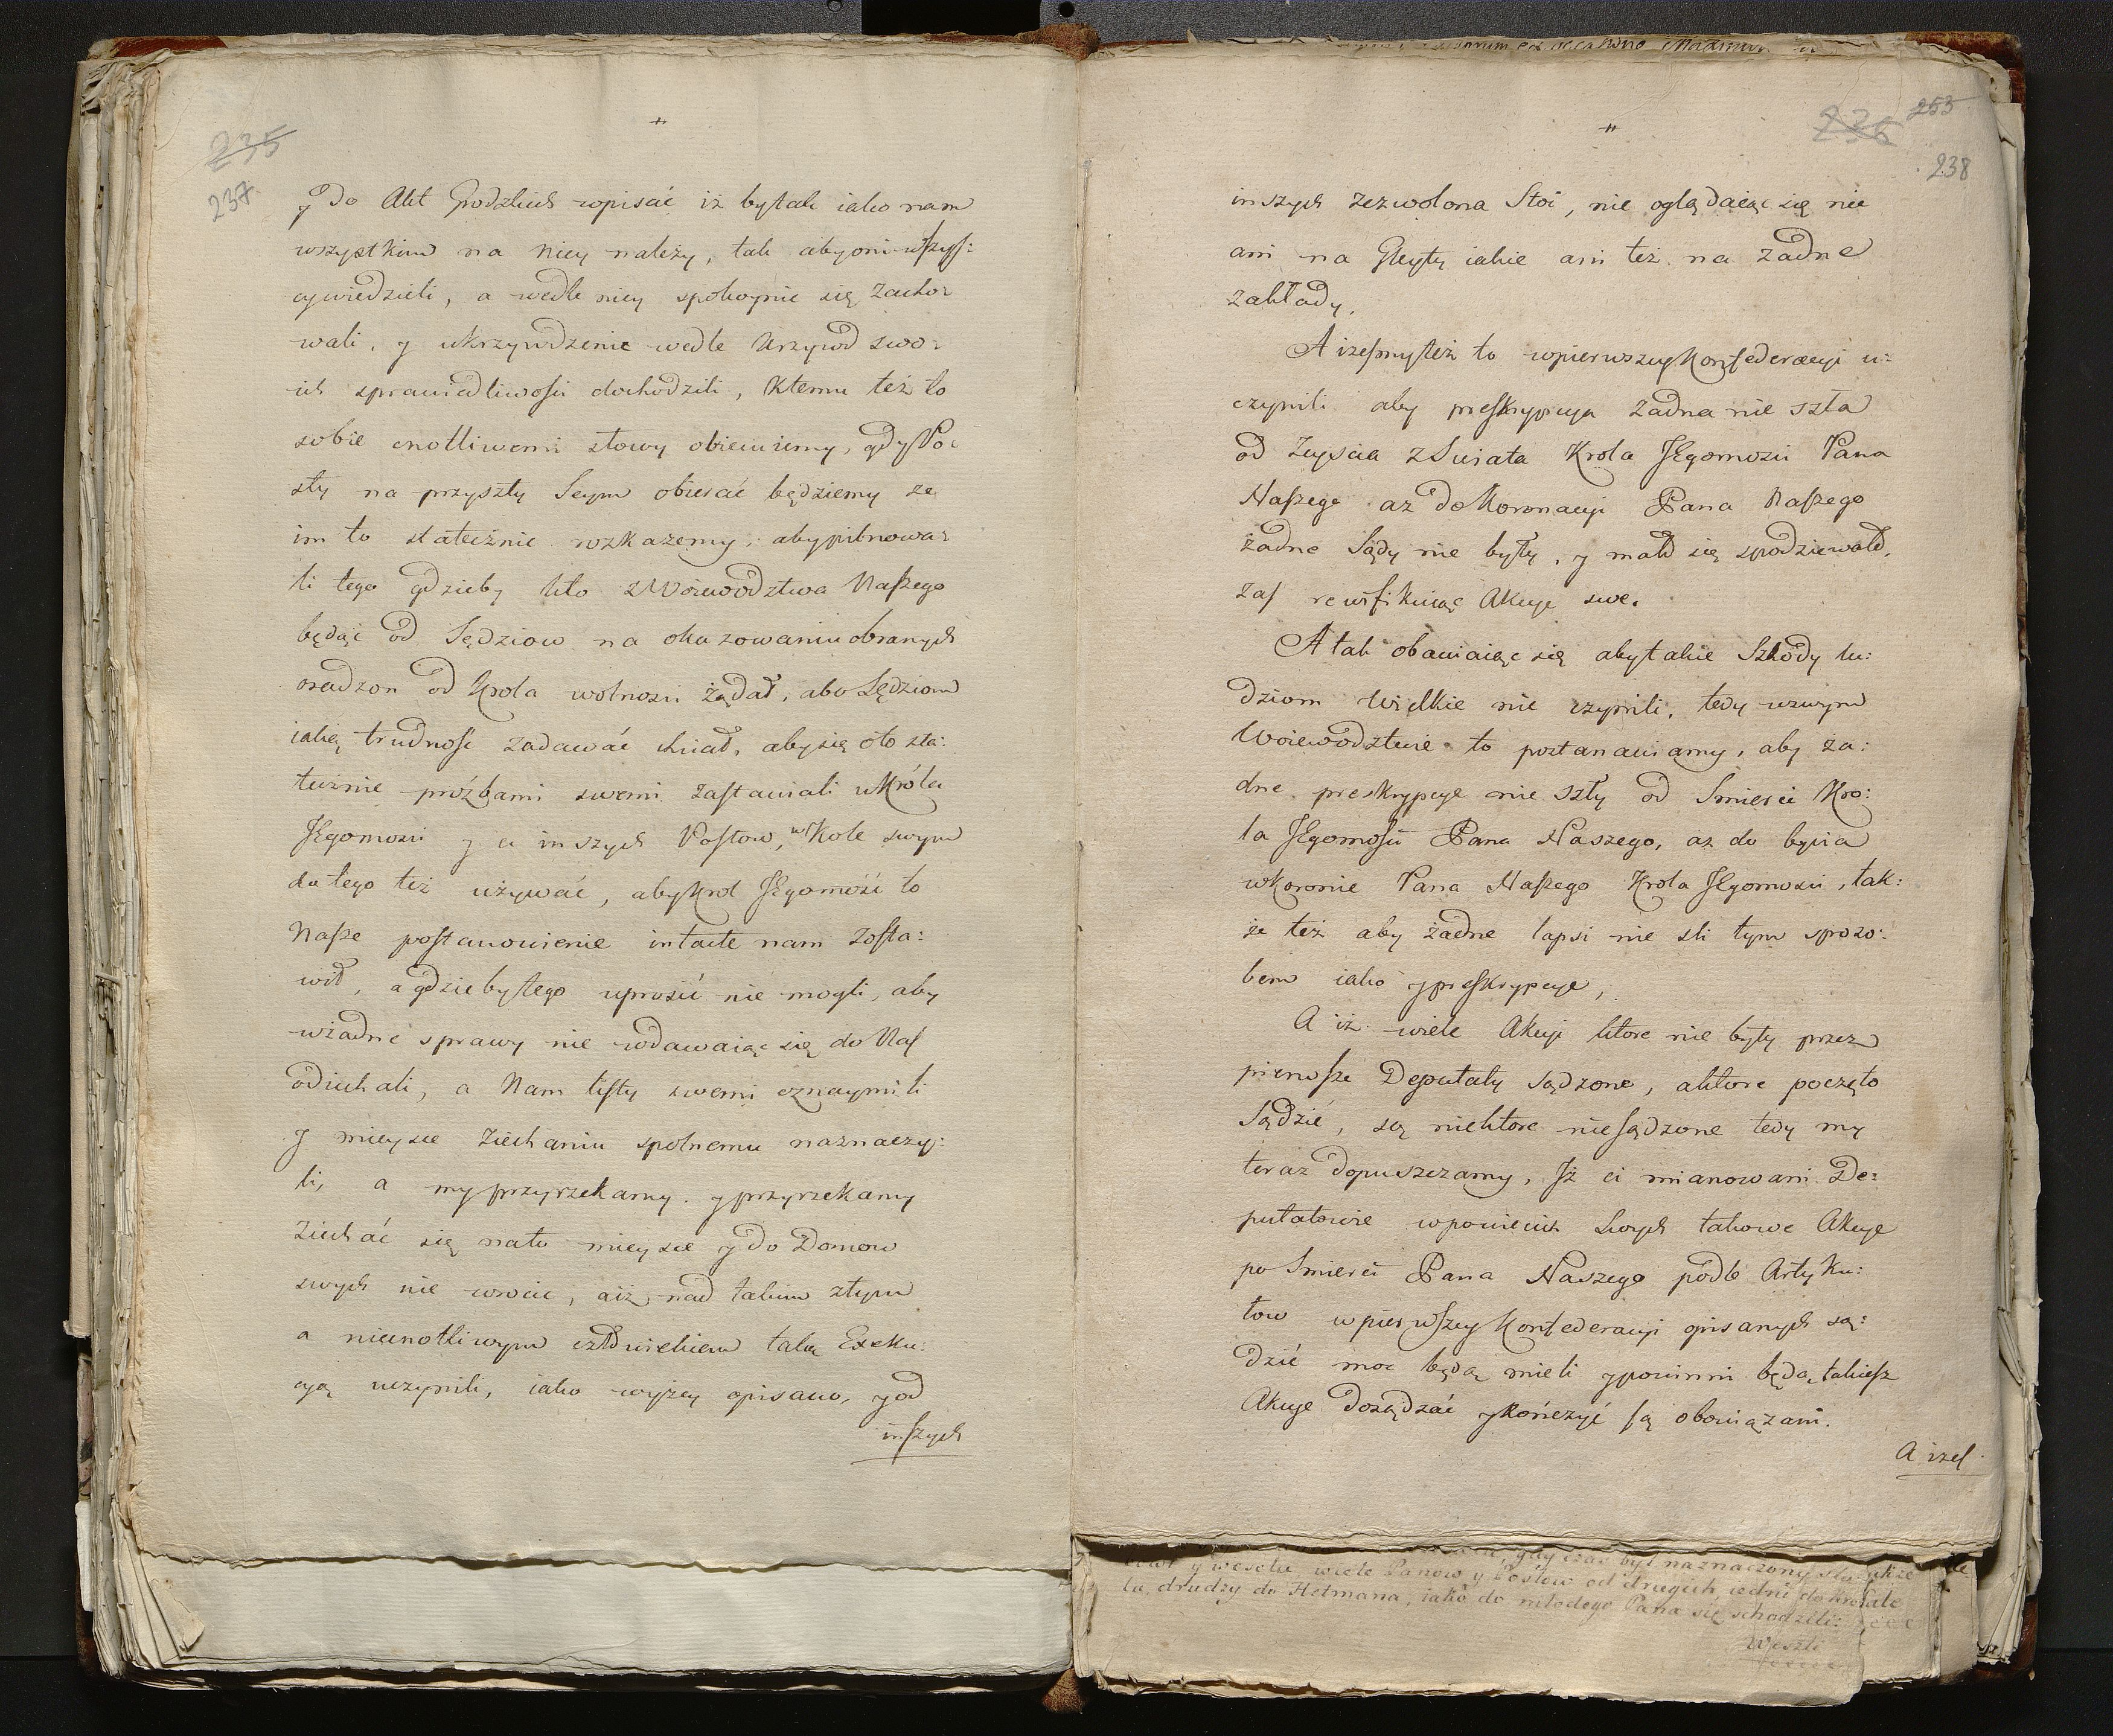 235
237.
y do Akt Grodzkich wpisać iż bytak iako nam
wszystkim na niey należy, tak abyoni wszys:
cywiedzieli, a wedle niey spokoynie się zacho:
wali, y ukrzywdzenie wedle krzywd swo:
ich sprawiedliwosci dochodzili, ktemu też to
sobie cnotliwemi słowy obiecuiemy, gdy Po:
sły na przyszły Seym obierać będziemy ze
im to statecznie rozkażemy, abypilnowa:
li tego gdzieby kto z Woiewodztwa Naszego
będąc od Sędziow na okazowaniu obranych
osadzon od Krola wolnosci żądał, abo Sędziom
iaką trudnosć zadawać chciał, aby się oto sta:
tecznie prozbami swemi zastawiali u Króla
JEgomosci y u inszych Posłow, w Kole swym
dotego też używać, aby Krol JEgomość to
Nasze postanowienie intacte nam zosta:
wił, a gdziebytego uprosić nie mogli, aby
wżadne sprawy nie wdawaiąc się do Nas
odiechali, a Nam listy swemi oznaymili
y mieysce ziechaniu spolnemu naznaczy:
li, a my przyrzekamy y przyrzekamy
ziechać się nato mieysce y do Domow
swych nie wrocić, aiż nad takim złym
a niecnotliwym człowiekiem taką Exeku:
cyą uczynili, iako wyżey opisano, y od
inszych
236 253
238
inszych zezwolona Stoi, nie oglądaiąc się nic
ani na Gleyty iakie ani też na żadne
zakłady.
A iżesmy też to wpierwszey Konfederacyi u:
czynili aby preskrypcya żadna nie szła
od Zeyscia z Swiata Krola JEgomosci Pana
Naszego aż do Koronacyi Pana Naszego
żadne Sądy nie były, y małd się spodziewałd,
zas rewifikuiąc Akcye swe.
A tak obawiaiąc się abytakie Szkody lu:
dziom wielkie nie czynili, tedy wswym
Woiewodztwie to postanawiamy, aby ża:
dne preskrypcye nie szły od Smierci Kro:
la JEgomosci Pana Naszego, aż do bycia
wkoronie Pana Naszego Krola JEgomosci, tak:
że też aby żadne lapsi nie szli tym sposo:
bem iako y preskrypcye,
A iż wiele Akcyi ktore nie były przez
pierwsze Deputaty sądzone, aktore poczęto
Sądzić, są niektore niesądzone tedy my
teraz dopuszczamy, Jż ci mianowani De:
putatowie wpowieciech swych takowe Akcye
po Smierci Pana Naszego podle Artyku:
łow wpierwszey Konfederacyi opisanych są:
dzić moc będą mieli y powinni będą takiesz
Akcye dosądzać y kończyć są obowiązani.
A iżes
gdy czas był naznaczony
y weselu, wiele Panow y Posłow od drugich iedni do Krola
la, drudzy do Hetmana, iako do młodego Pana się schodzili:
Weszli